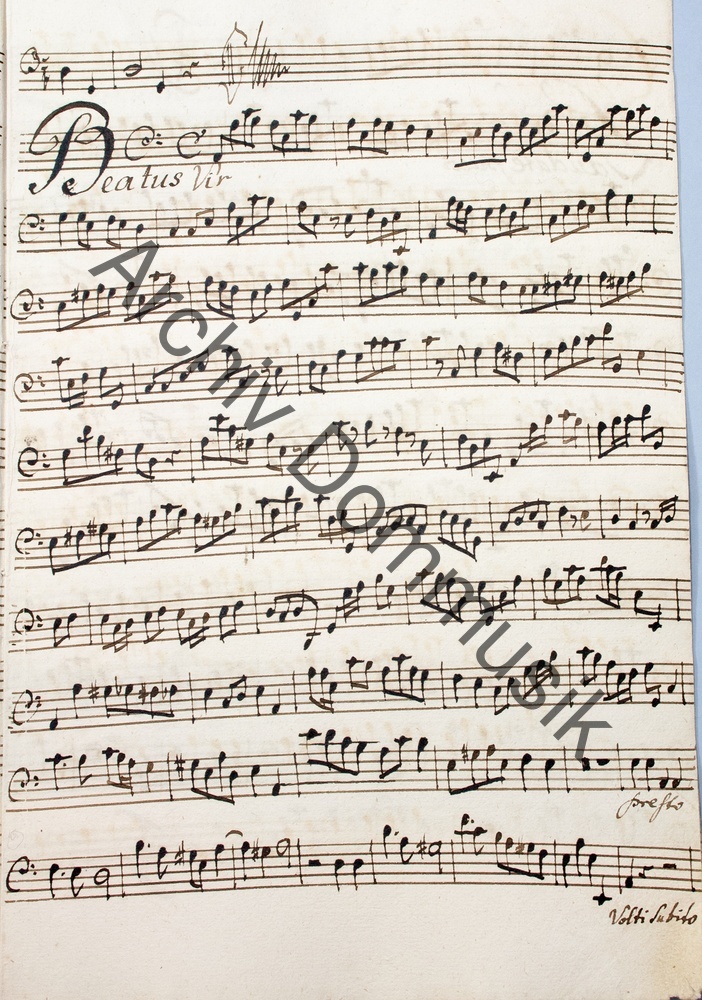 Beatus Vir
Archiv Dommusik
presto
Volti Subito